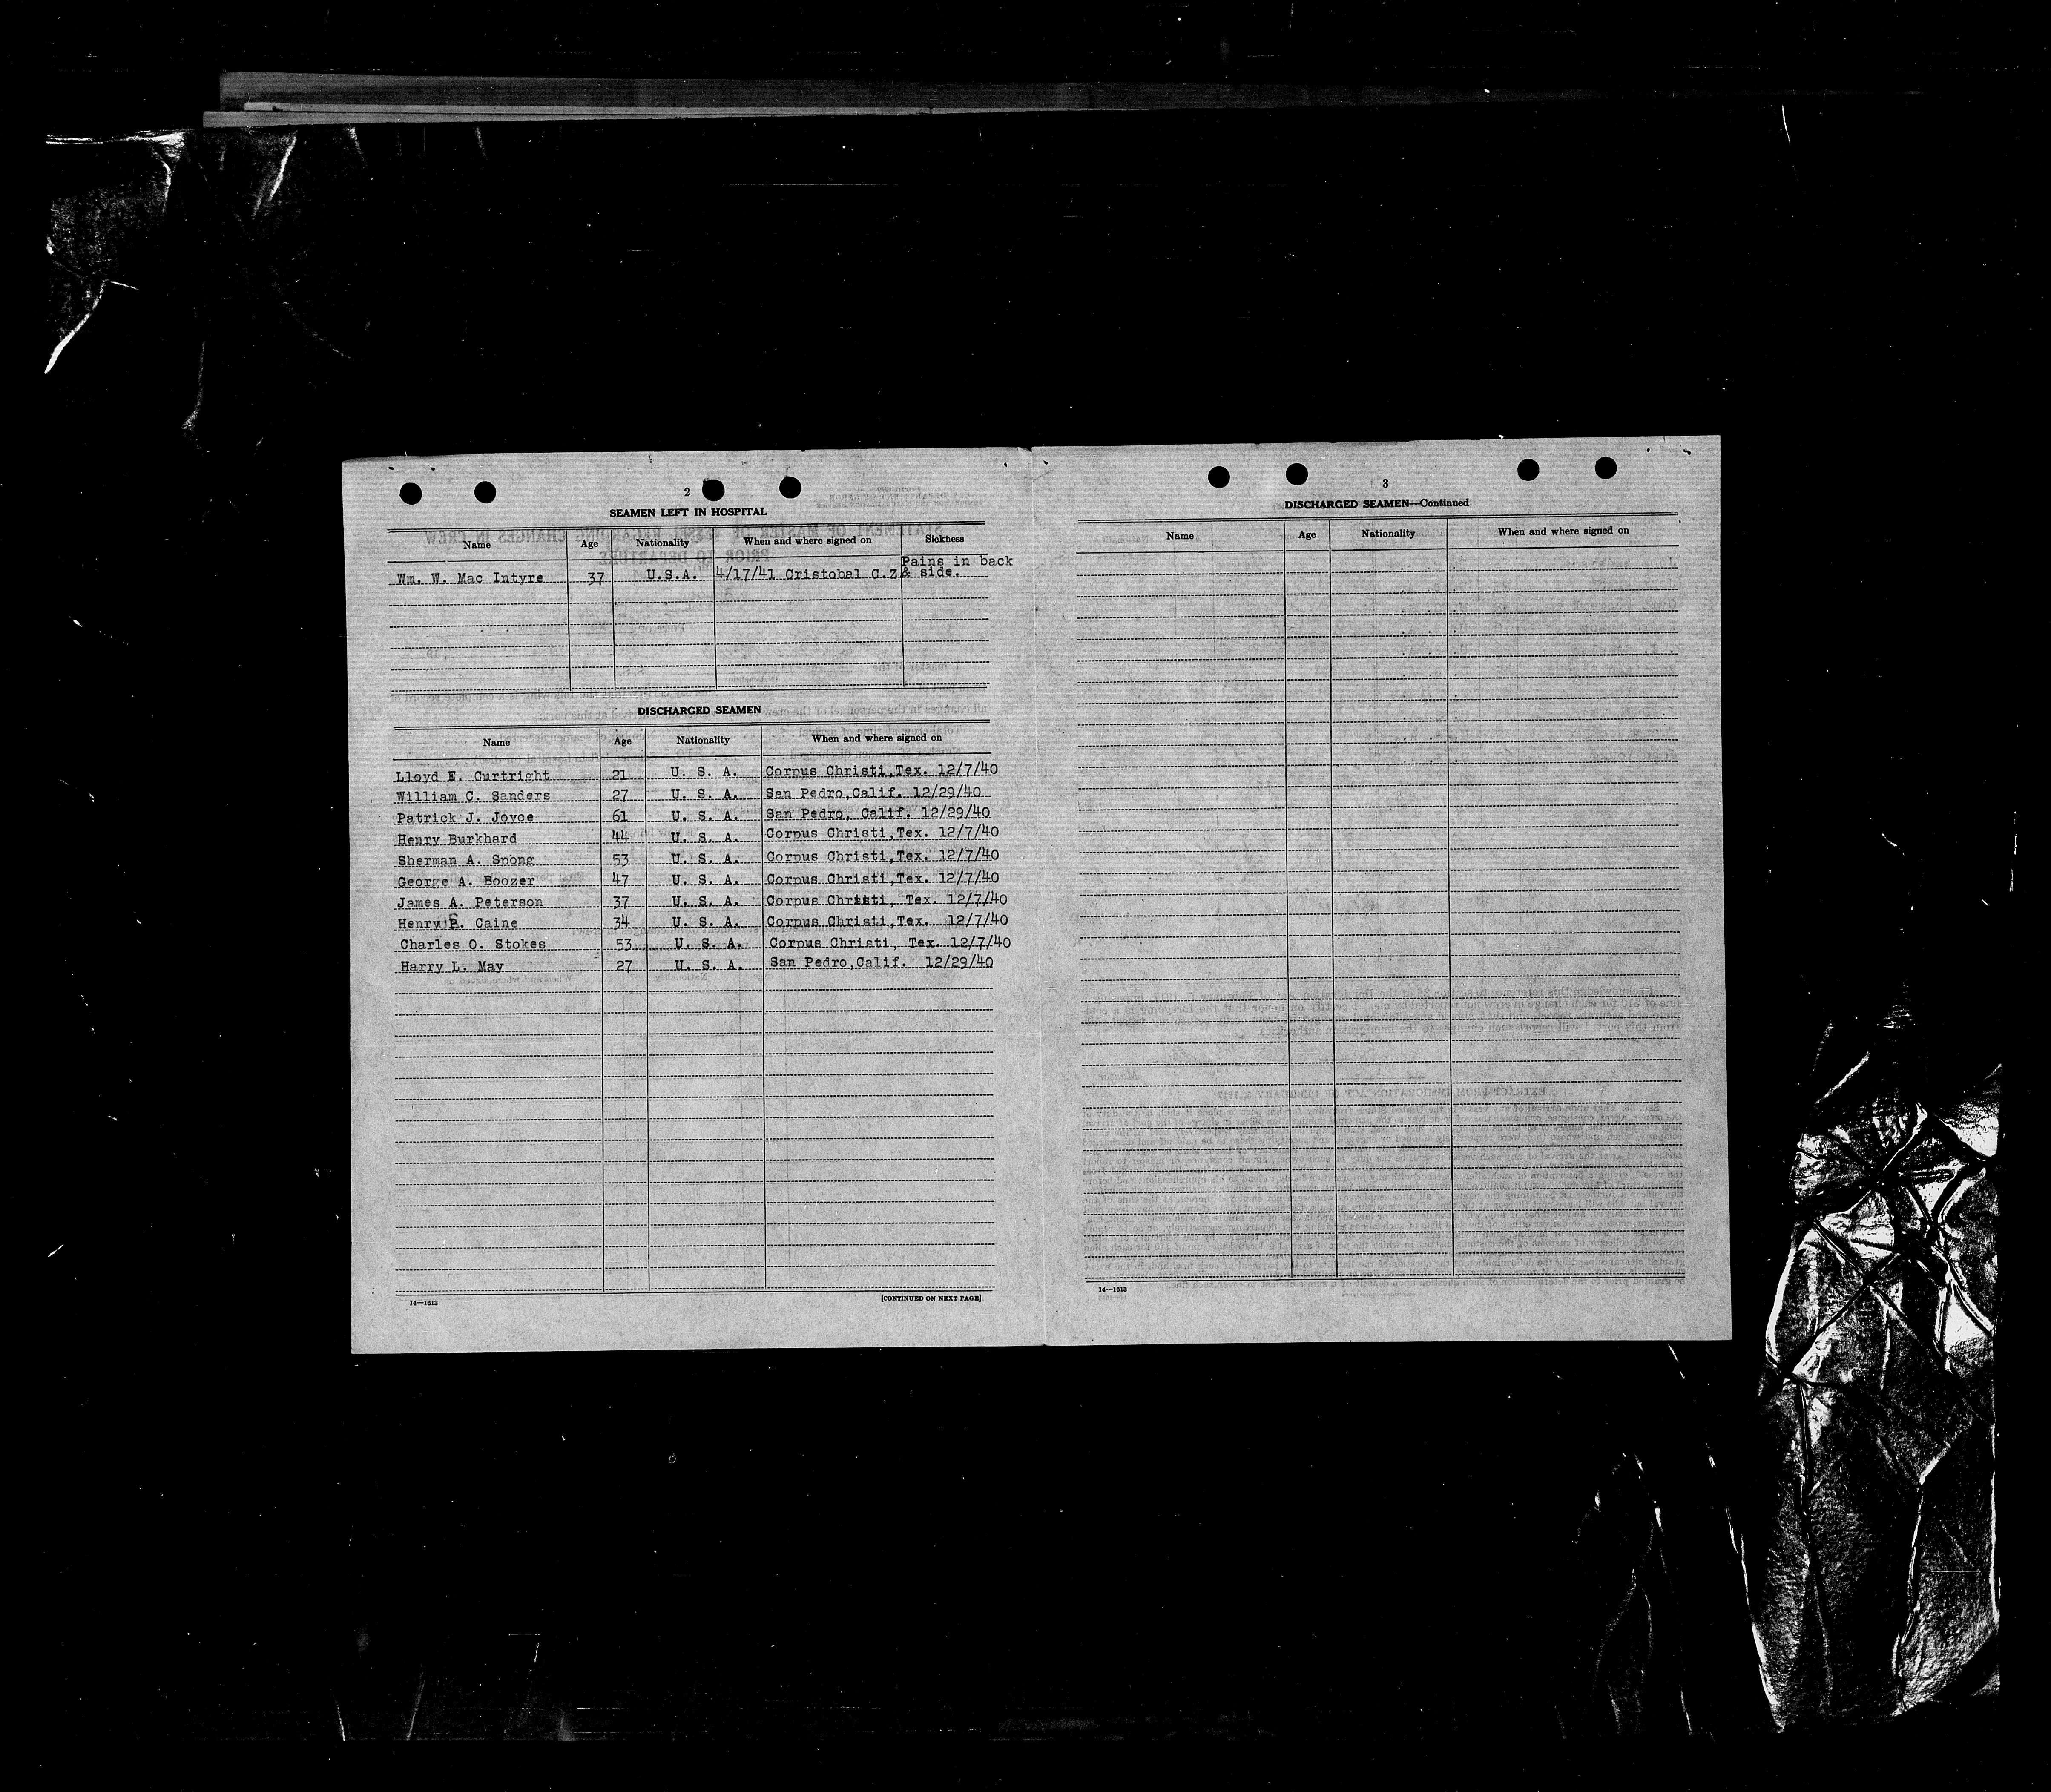 2
SEAMEN LEFT IN HOSPITAL
Name Age Nationality When and where signed on Sickness
Wm. W. Mac Intyre 37 U.S.A. 4/17/41 Cristobal C.Z. Pains in back
& side.
DISCHARGED SEAMEN
Name Age Nationality When and where signed on
Lloyd E. Curtright 21 U. S. A. Corpus Christi,Tex. 12/7/40
William C. Sanders 27 U. S. A. San Pedro,Calif. 12/29/40
Patrick J. Joyce 61 U. S. A. San Pedro, Calif. 12/29/40
Henry Burkhard 44 U. S. A. Corpus Christi,Tex. 12/7/40
Sherman A. Spong 53 U. S. A. Corpus Christi,Tex. 12/7/40
George A. Boozer 47 U. S. A. Corpus Christi,Tex. 12/7/40
James A. Peterson 37 U. S. A. Corpus Christi, Tex. 12/7/40
Henry Caine 34 U. S. A. Corpus Christi,Tex. 12/7/40
Charles O. Stokes 53 U. S. A. Corpus Christi, Tex. 12/7/40
Harry L. May 27 U. S. A. San Pedro,Calif. 12/29/40
14—1613 [CONTINUED ON NEXT PAGE]
3
DISCHARGED SEAMEN—Continued
Name Age Nationality When and where signed on
14—1613